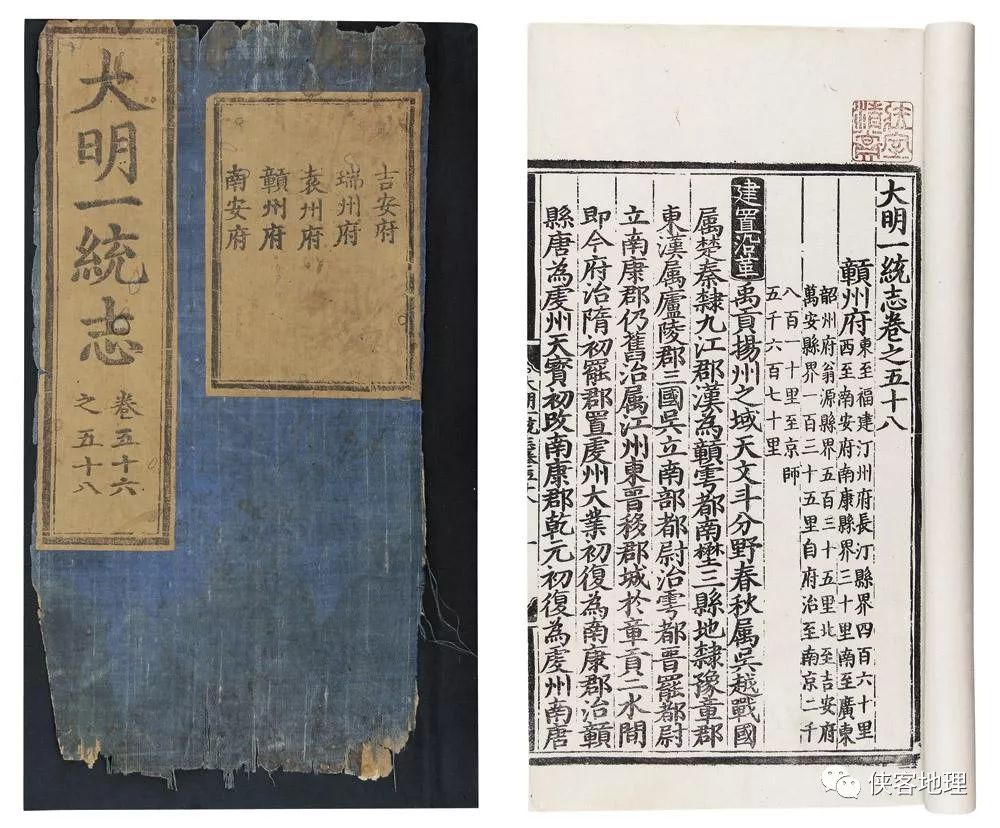 大明一統志
卷五十六
之五十八
吉安府
瑞州府
袁州府
贛州府
南安府
大明一統志卷之五十八
贛州府
東至福建汀州府長汀縣界四百六十里
西至南安府南康縣界三十里南至廣東
韶州府翁源縣界五百三十五里北至吉安府
萬安縣界一百三十五里自府治至南京二千
八百一十里至京師
五千六百七十里
建置沿革 禹貢揚州之域天文斗分野春秋属吳越戰國
属楚秦隷九江郡漢為贛雩都南壄三縣地隷豫章郡
東漢属廬陵郡三國吳立南部都尉治雩都晉罷都尉
立南康郡仍舊治属江州東晉移郡城於章貢二水間
即今府治隋初罷郡置虔州大業初復為南康郡治贛
縣唐為虔州天寶初改南康郡乾元初復為虔州南唐
侠客地理